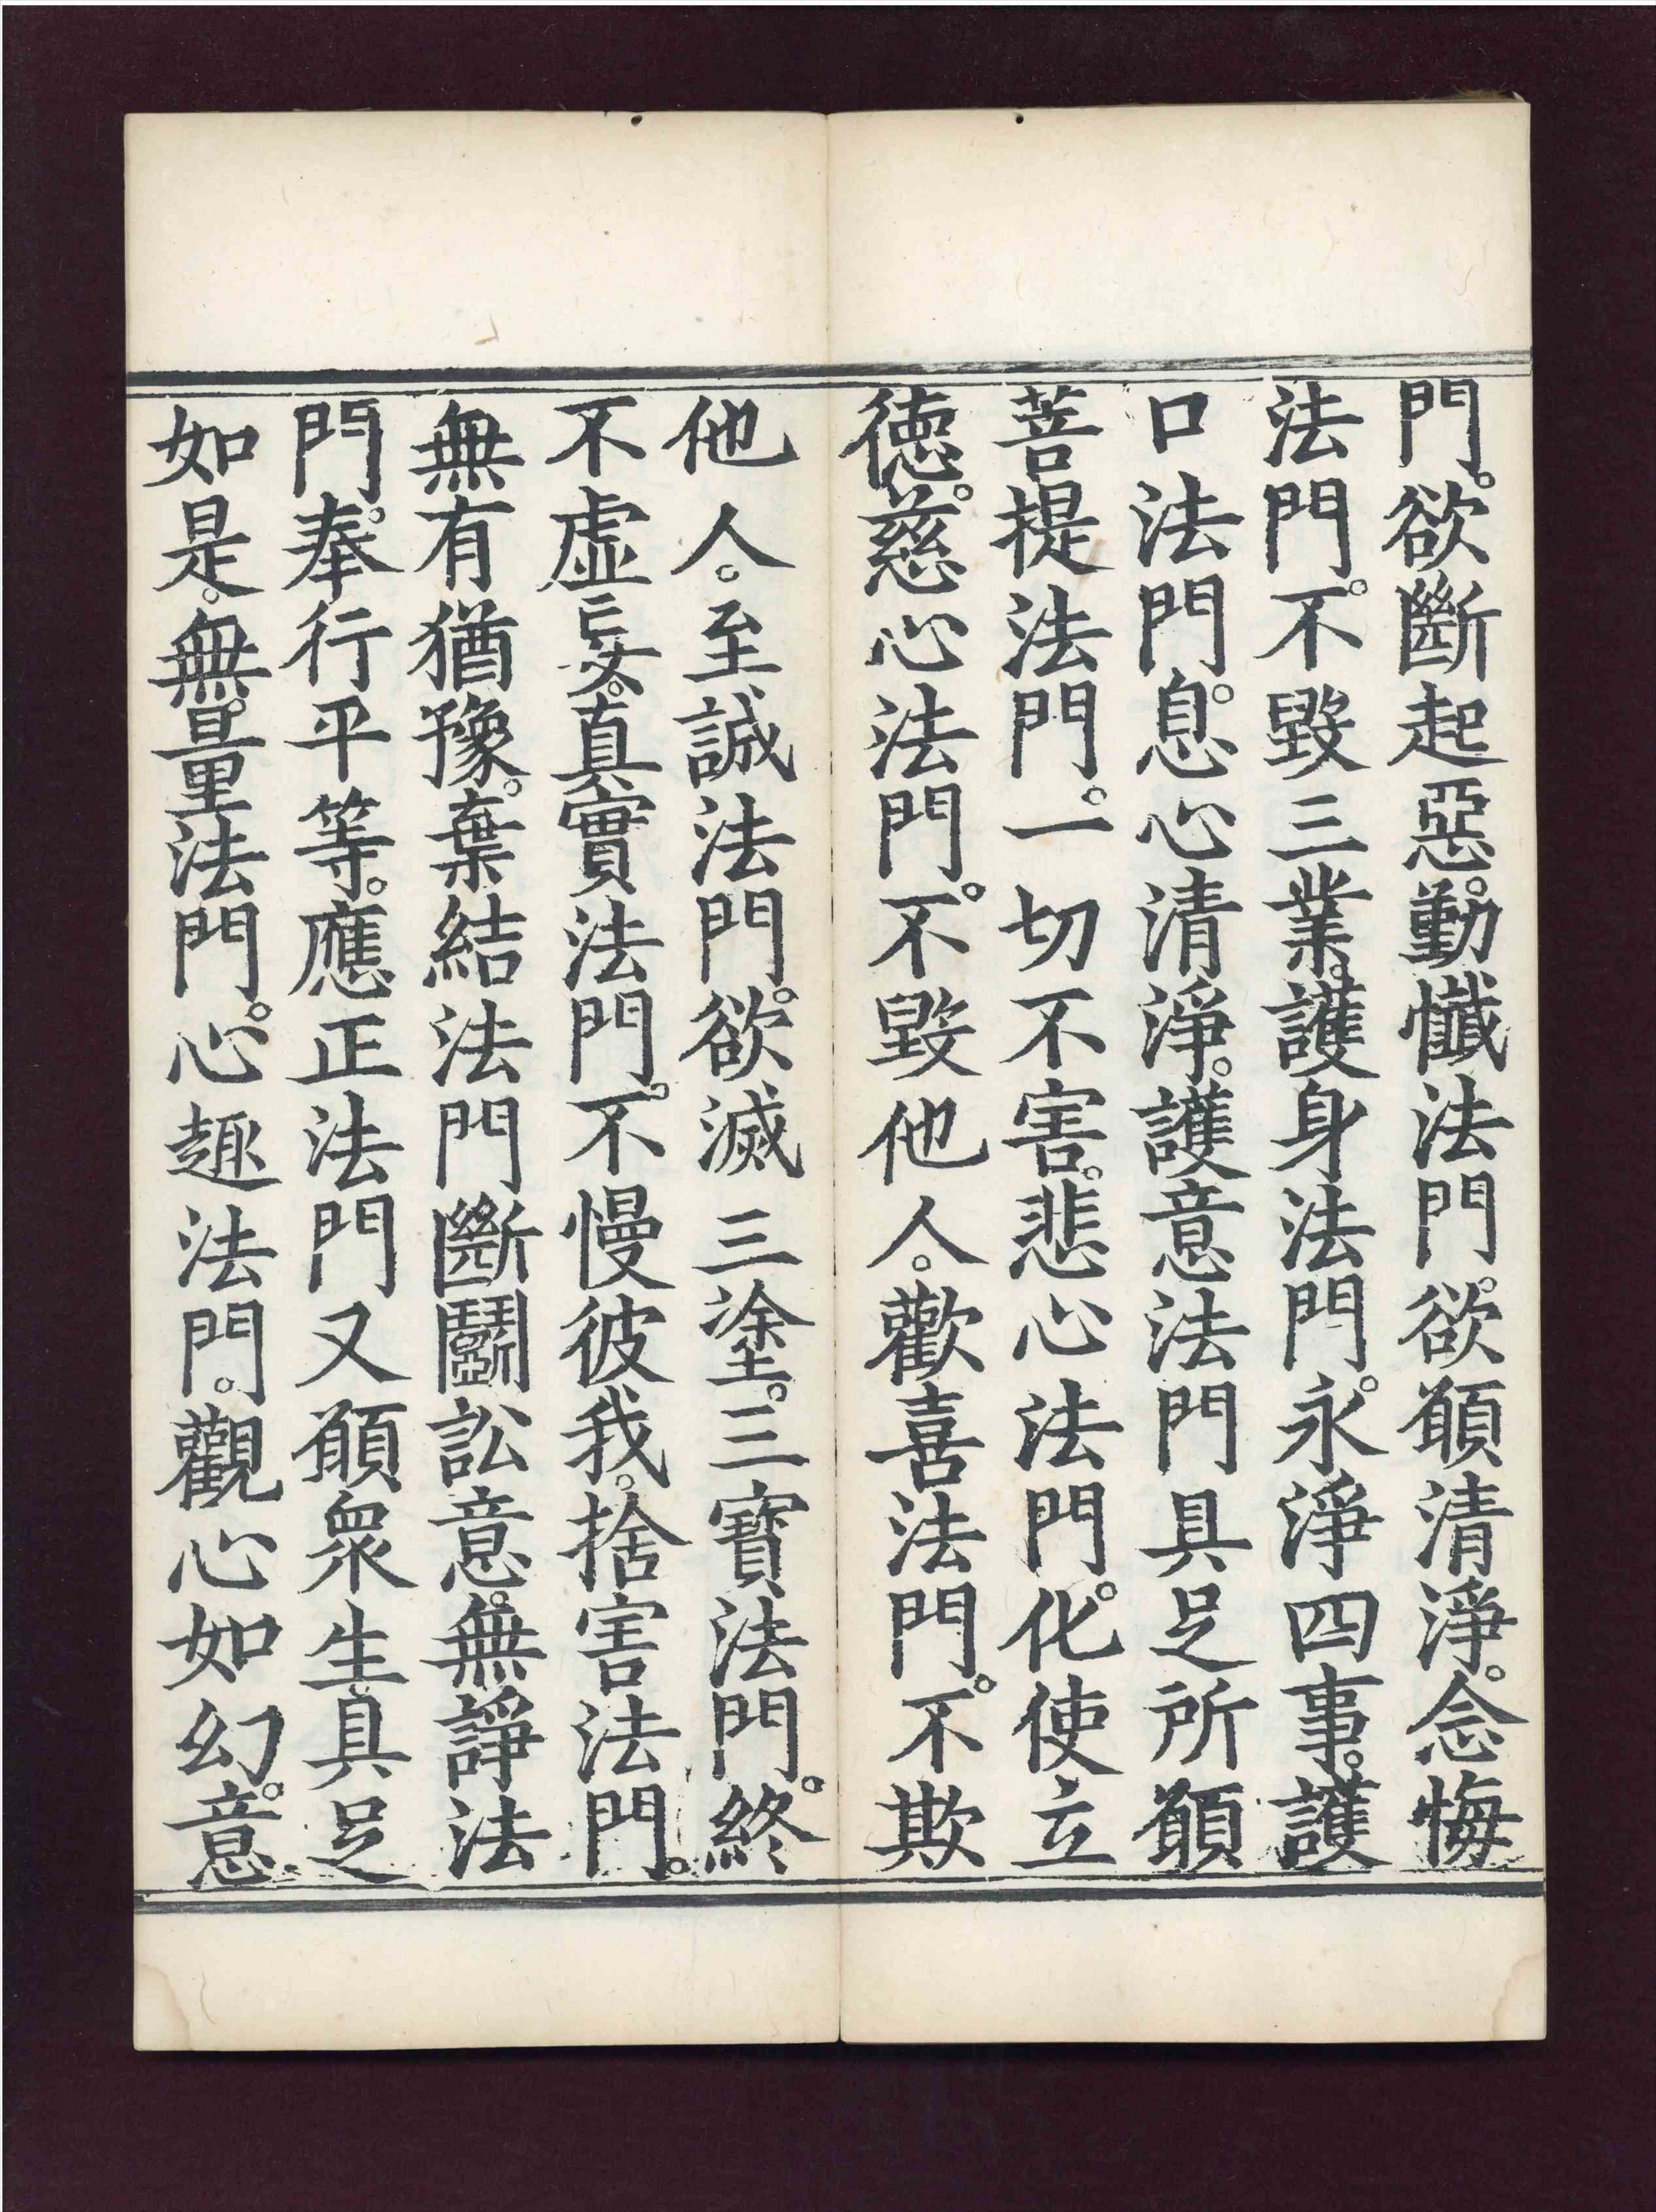 門。欲斷起惡。勤懺法門。欲願清淨。念悔
法門。不毀三業。護身法門。永淨四事。護
口法門。息心清淨。護意法門具足所願
菩提法門。一切不害。悲心法門。化使立
德。慈心法門。不毀他人。歡喜法門。不欺
他人。至誠法門。欲滅三塗。三寶法門。終
不虛妄。真實法門。不慢彼我。捨害法門。
無有猶豫。棄結法門斷鬭訟意。無諍法
門。奉行平等。應正法門又願衆生具足
如是。無量法門。心趣法門。觀心如幻。意